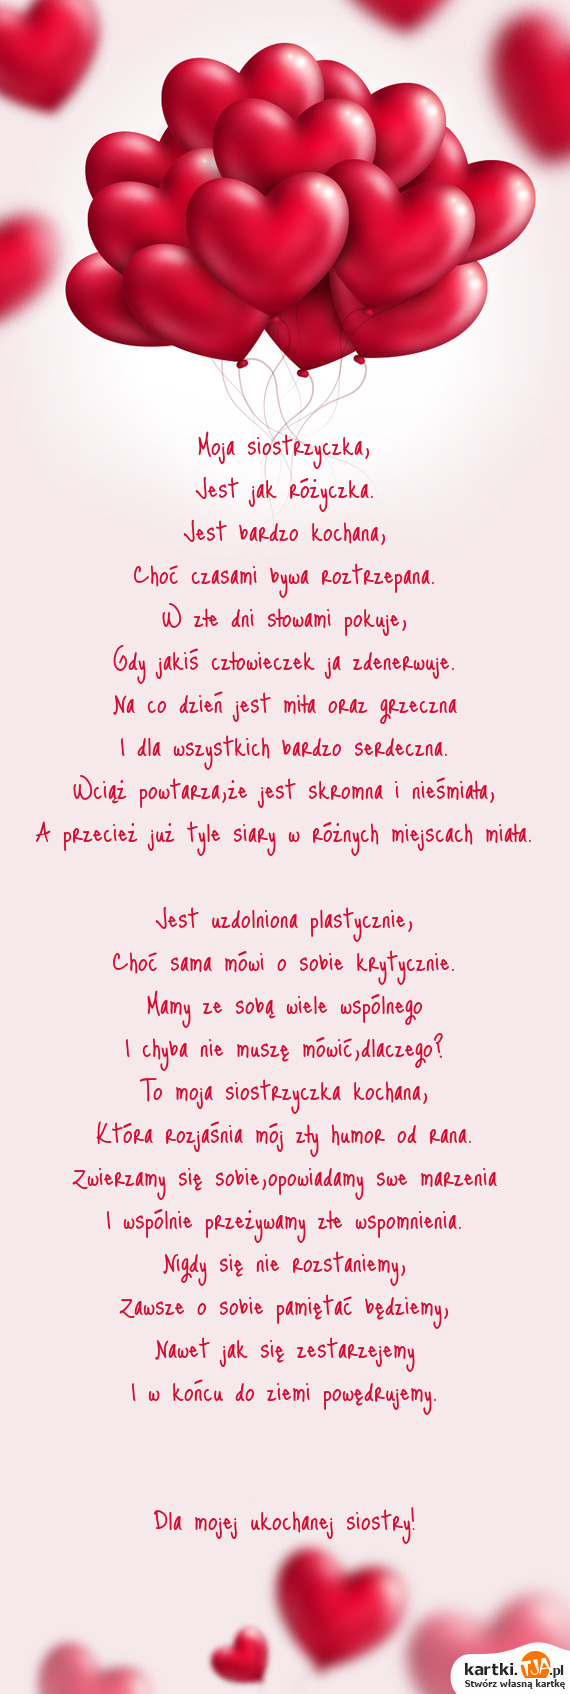 Moja siostrzyczka,
Jest jak różyczka.
Jest bardzo kochana,
Choć czasami bywa roztrzepana.
W złe dni słowami pokuje,
Gdy jakiś człowieczek ja zdenerwuje.
Na co dzień jest miła oraz grzeczna
I dla wszystkich bardzo serdeczna.
Wciąż powtarza,że jest skromna i nieśmiała,
A przecież już tyle siary w różnych miejscach miała.
Jest uzdolniona plastycznie,
Choć sama mówi o sobie krytycznie.
Mamy ze sobą wiele wspólnego
I chyba nie muszę mówić,dlaczego?
To moja siostrzyczka kochana,
Która rozjaśnia mój zły humor od rana.
Zwierzamy się sobie,opowiadamy swe marzenia
I wspólnie przeżywamy złe wspomnienia.
Nigdy się nie rozstaniemy,
Zawsze o sobie pamiętać będziemy,
Nawet jak się zestarzejemy
I w końcu do ziemi powędrujemy.
Dla mojej ukochanej siostry!
kartki.TJA.pl
Stwórz własną kartkę